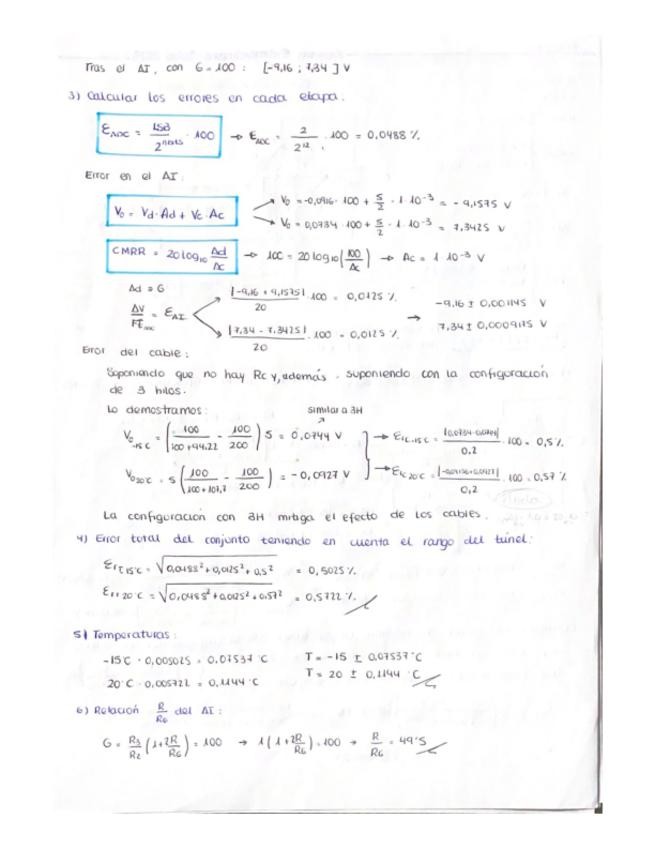 Tras el AI, con G=100 : [-9,16 ; 7,34] V
3) Calcular los errores en cada etapa.
E_ADC = LSB / 2^nbits · 100 → E_ADC = 2 / 2^12 · 100 = 0,0488 %
Error en el AI:
V0 = Vd·Ad + Vc·Ac
V0 = -0,0916 · 100 + 5/2 · 1·10^-3 = -9,1575 V
V0 = 0,0734 · 100 + 5/2 · 1·10^-3 = 7,3425 V
CMRR = 20log10 Ad/Ac → 100 = 20log10(100/Ac) → Ac = 1·10^-3 V
Ad = G
ΔV / = E_AI
|-9,16 + 9,1575| / 20 · 100 = 0,0125 %
|7,34 - 7,3425| / 20 · 100 = 0,0125 %
→ -9,16 ± 0,001145 V
7,34 ± 0,0009175 V
Error del cable:
Suponiendo que no hay Rc y, además, suponiendo con la configuración
de 3 hilos.
Lo demostramos: similar a 3H
V0 -15°C = (100 / 100+94,22 - 100 / 200) 5 = 0,0744 V → E 15°C = / 0.2 · 100 = 0,5 %
V0 20°C = 5 (100 / 100+107,7 - 100 / 200) = -0,0927 V → E 20°C = / 0,2 · 100 = 0,57 %
La configuración con 3H mitiga el efecto de los cables.
4) Error total del conjunto teniendo en cuenta el rango del túnel:
E 15°C = √0,0488²+0,0125²+0,5² = 0,5025 %
E 20°C = √0,0488²+0,0125²+0,57² = 0,5722 %
5) Temperaturas:
-15°C · 0,005025 = 0,07537 °C T = -15 ± 0,07537 °C
20°C · 0,005722 = 0,1144 °C T = 20 ± 0,1144 °C
6) Relación R/RG del AI:
G = R3/R2 (1+2R/RG) = 100 → 1(1+2R/RG) = 100 → R/RG = 49'5